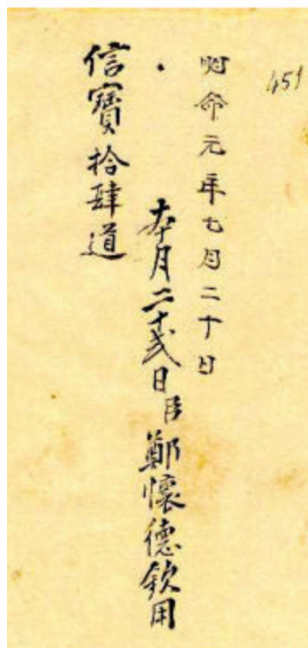 451
明命元年七月二十日
本月二十弍日臣鄭懷德欽用
信寶拾肆道